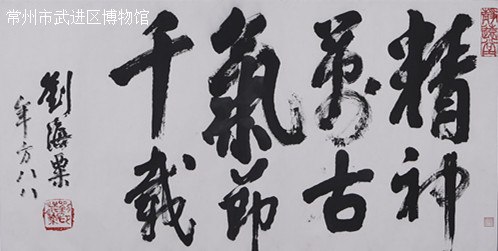 常州市武进区博物馆
精神
萬古
氣節
千載
劉海粟
年方八八